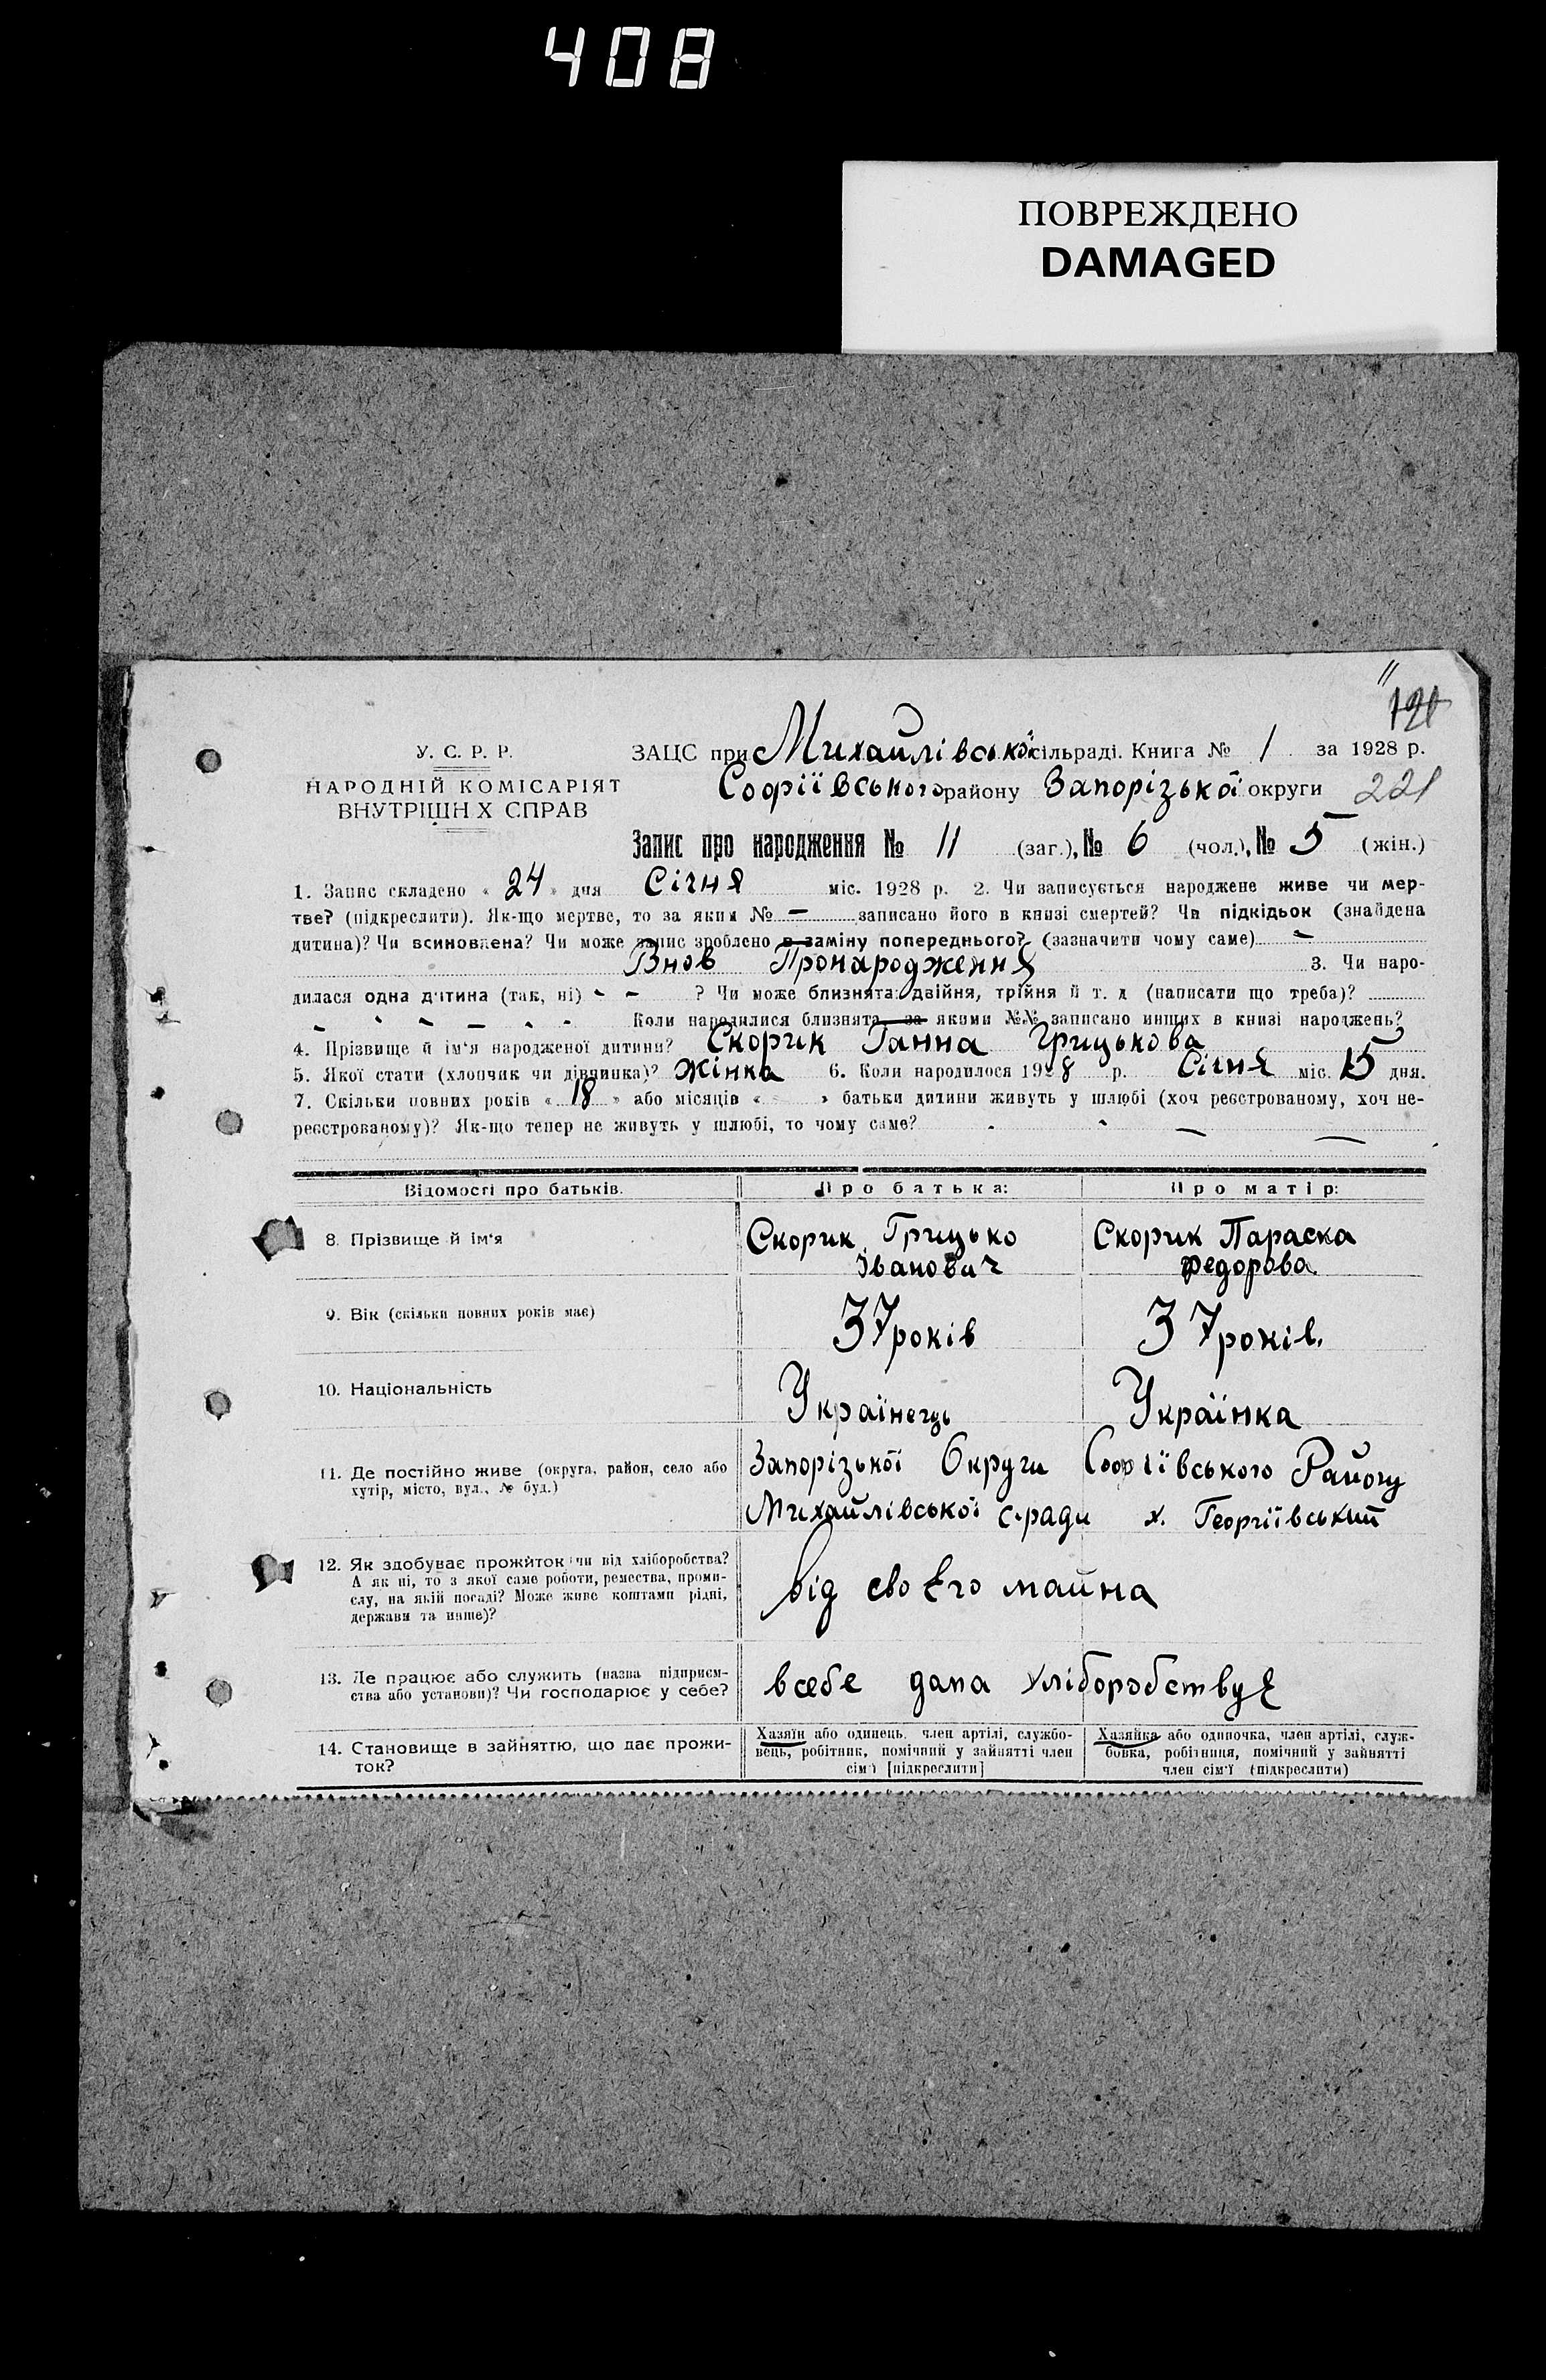 408
ПОВРЕЖДЕНО
DAMAGED
У. С. Р. Р.
НАРОДНІЙ КОМІСАРІЯТ
ВНУТРІШНІХ СПРАВ
ЗАЦС при Михайлівській сільраді. Книга № 1 за 1928 р.
Софіївського району Запорізької округи 221
Запис про народження № 11 (заг.), № 6 (чол.), № 5 (жін.)
1. Запис складено « 24 » дня Січня міс. 1928 р. 2. Чи записується народжене живе чи мер-
тве? (підкреслити). Як-що мертве, то за яким № — записано його в книзі смертей? Чи підкідьок (знайдена
дитина)? Чи всиновлена? Чи може запис зроблено в заміну попереднього? (зазначити чому саме) -
Внов Пронародження 3. Чи наро-
дилася одна дитина (так, ні) - - ? Чи може близнята: двійня, трійня й т. д. (написати що треба)?
Коли народилися близнята, за якими №№ записано инших в книзі народжень?
4. Прізвище й ім'я народженої дитини? Скорик Ганна Грицькова
5. Якої стати (хлопчик чи дівчинка)? Жінка 6. Коли народилося 1928 р. Січня міс. 15 дня.
7. Скільки повних років « 18 » або місяців « » батьки дитини живуть у шлюбі (хоч реєстрованому, хоч не-
реєстрованому)? Як-що тепер не живуть у шлюбі, то чому саме?
Відомості про батьків. Про батька: Про матір:
8. Прізвище й ім'я Скорик Грицько Скорик Параска
Іванович Федорова.
9. Вік (скільки повних років має) 37 років 37 років.
10. Національність Українець Українка
11. Де постійно живе (округа, район, село або Запорізької Округи Софіївського Району
хутір, місто, вул., № буд.) Михайлівської с-ради х. Георгіївський
12. Як здобуває прожиток: чи від хліборобства?
А як ні, то з якої саме роботи, ремества, проми-
слу, на якій посаді? Може живе коштами рідні, від своЄго майна
держави та инше)?
13. Де працює або служить (назва підприєм- всебе дома хліборобствує
ства або установи)? Чи господарює у себе?
14. Становище в зайняттю, що дає прожи-
ток?
Хазяїн або одинець, член артілі, службо-
вець, робітник, помічний у зайнятті член
сім'ї [підкреслити]
Хазяйка або одиночка, член артілі, служ-
бовка, робітниця, помічний у зайнятті
член сім'ї (підкреслити)